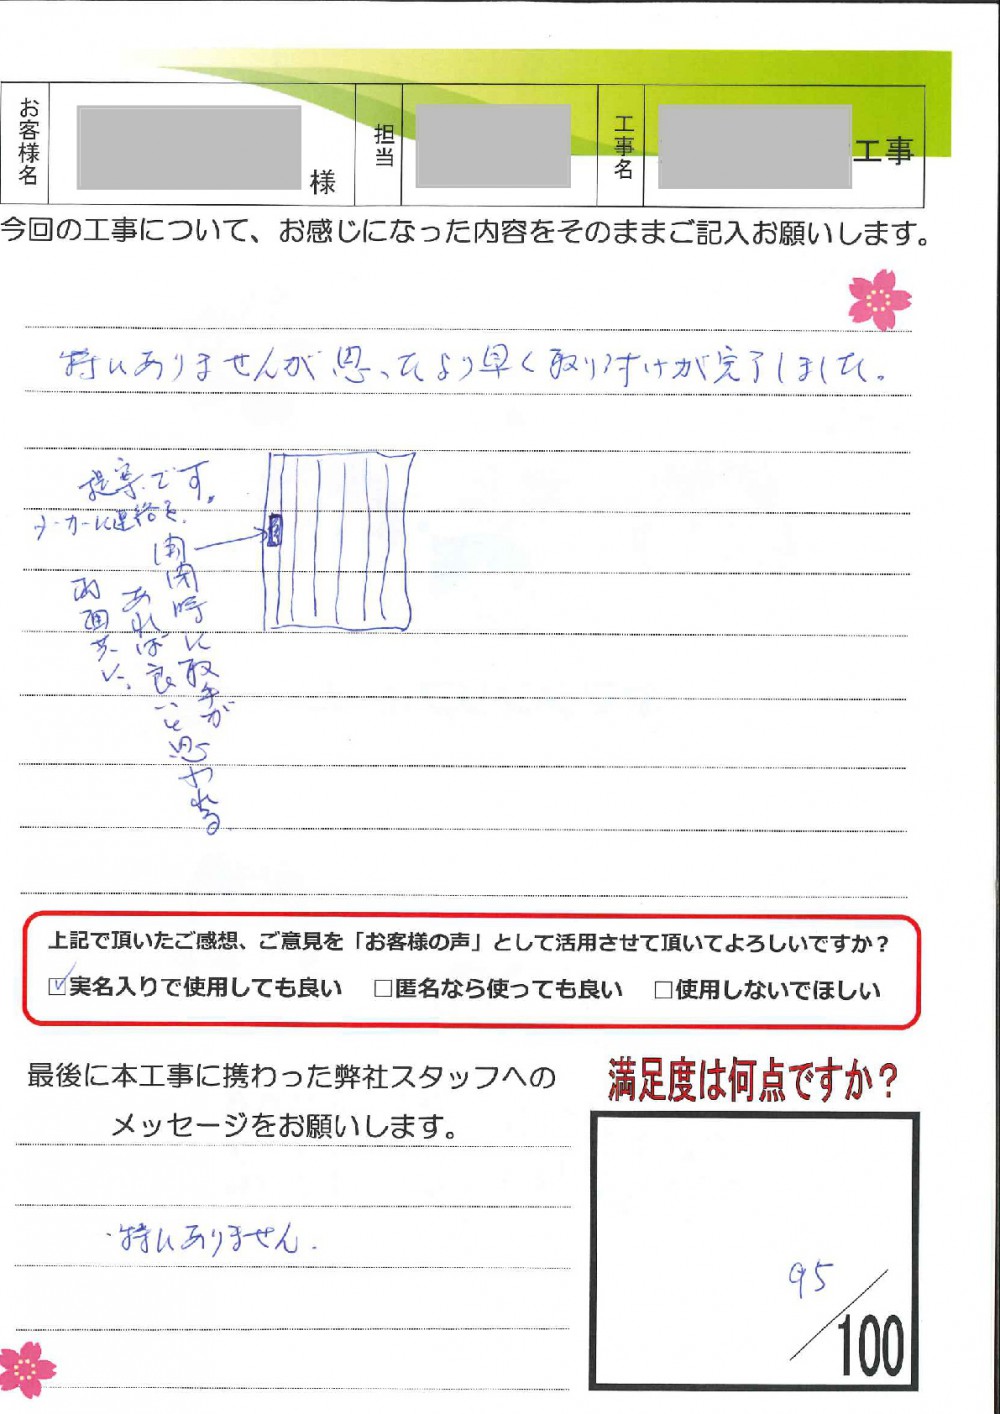 お客様名
様
担当
工事名
工事
今回の工事について、お感じになった内容をそのままご記入お願いします。
特にありませんが思ったより早く取り付けが完了しました。
提案です。
メーカーに連絡を。
開閉時に取手が
あれば良いと思われる
両面共に。
上記で頂いたご感想、ご意見を「お客様の声」として活用させて頂いてよろしいですか？
☑実名入りで使用しても良い　□匿名なら使っても良い　□使用しないでほしい
最後に本工事に携わった弊社スタッフへの
メッセージをお願いします。
・特にありません.
満足度は何点ですか？
95/100